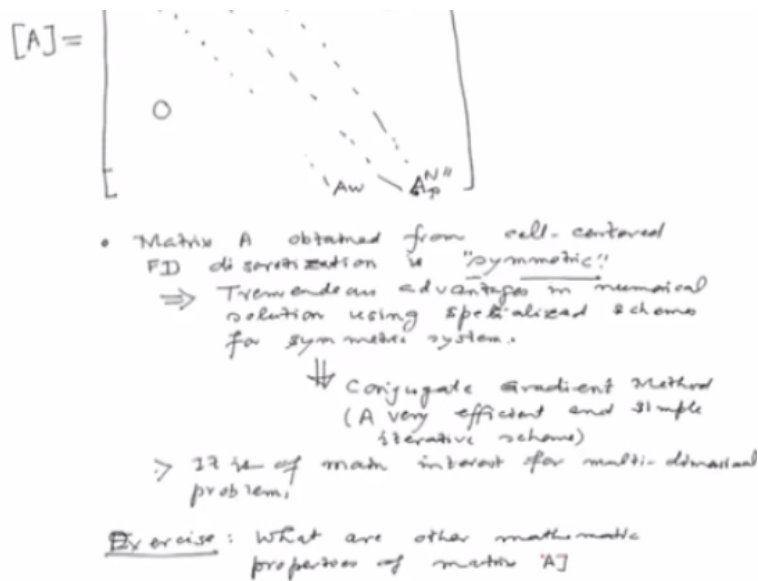 [A] =
O
Aw Ap N"
• Matrix A obtained from cell-centered
FD discretization is "symmetric"
⇒ Tremendous advantages in numerical
solution using specialized scheme
for symmetric system.
⇓ Conjugate Gradient Method
(A very efficient and simple
iterative scheme)
> It is of main interest for multi-dimensional
problem,
Exercise: What are other mathematic
properties of matrix A]